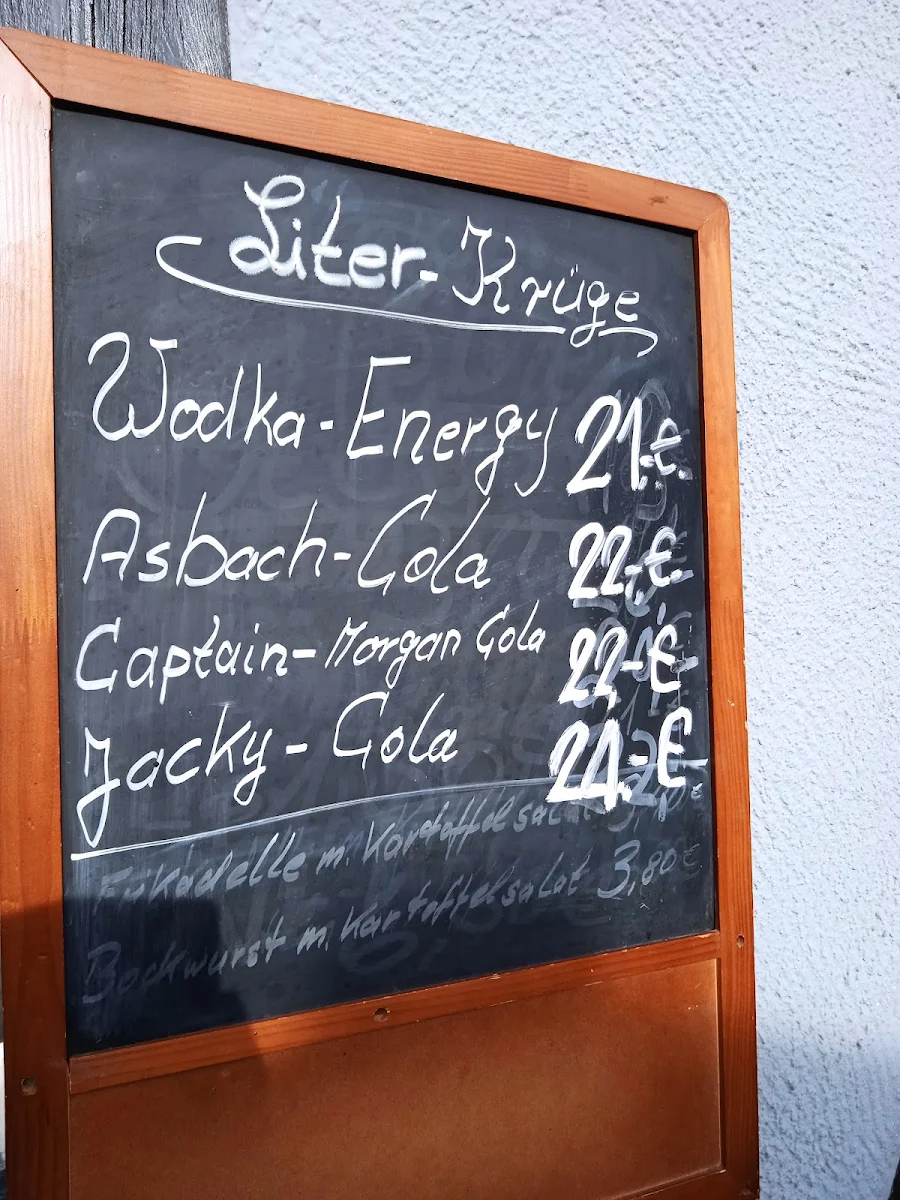 Liter-Krüge
Wodka-Energy 21.-€
Asbach-Cola 22.-€
Captain-Morgan Cola 22.-€
Jacky-Cola 24.-€
Frikadelle m. Kartoffelsalat
Bockwurst m. Kartoffelsalat 3,80€